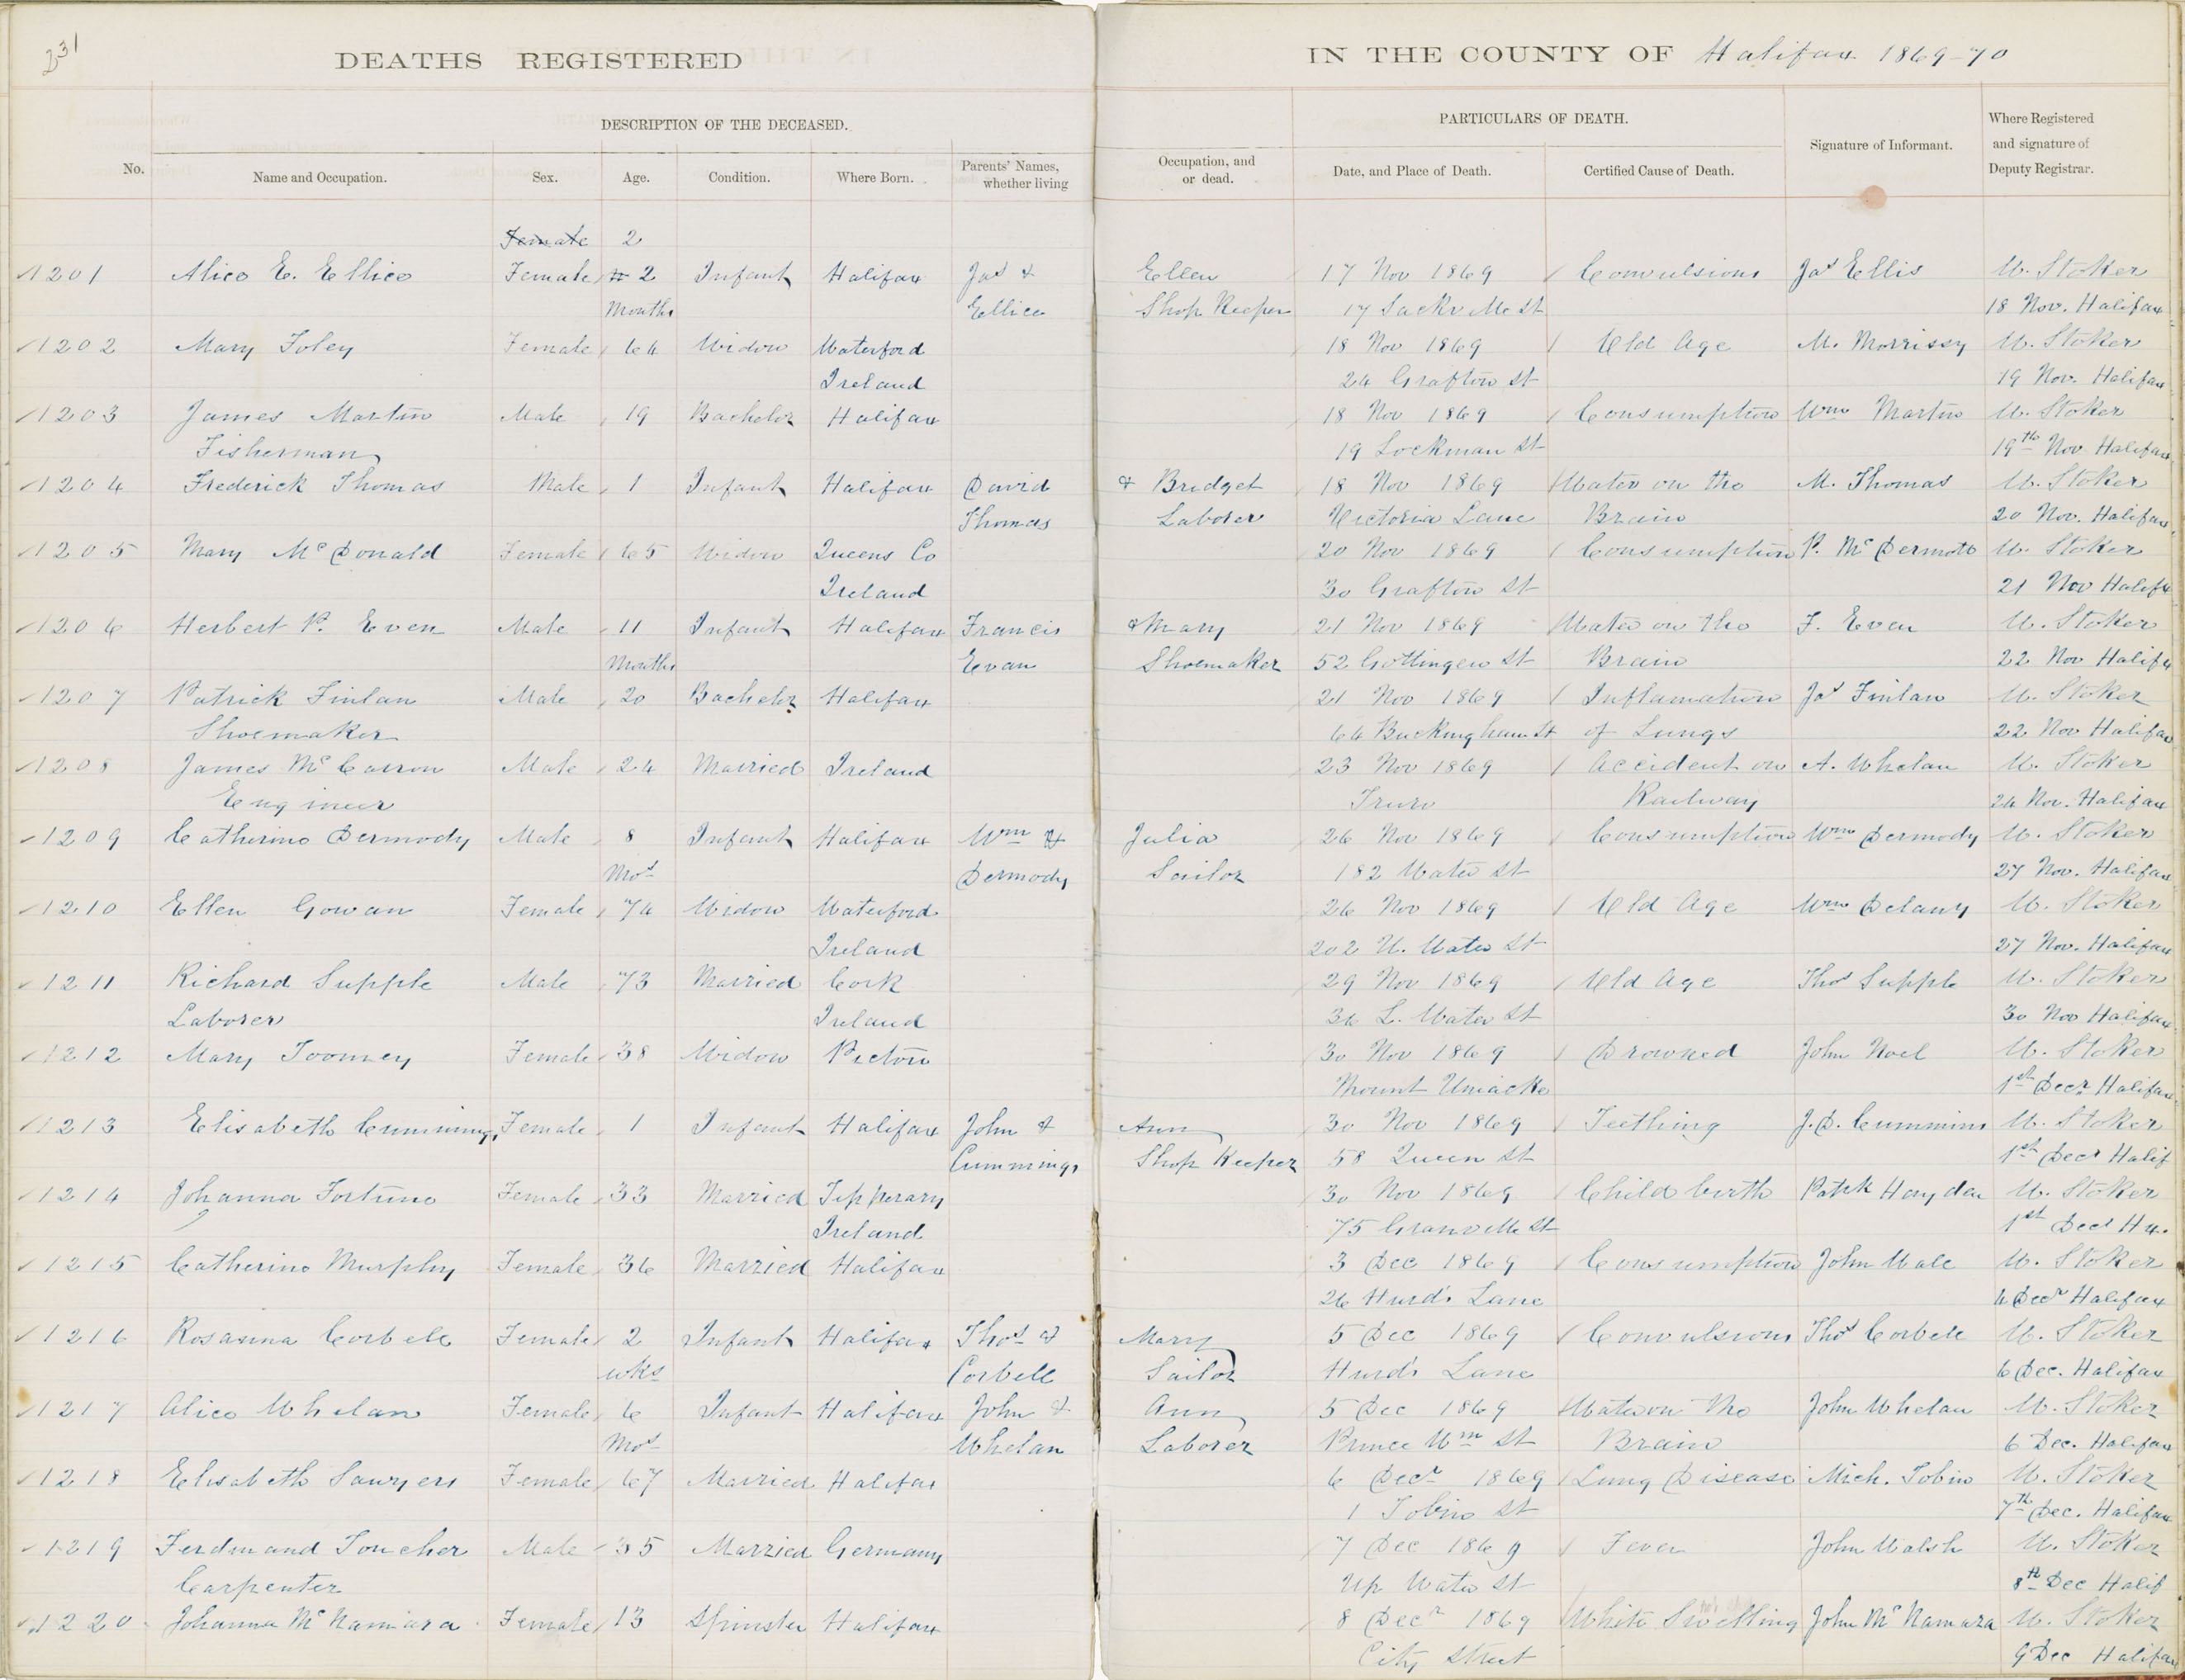 231
DEATHS REGISTERED IN THE COUNTY OF Halifax 1869-70
DESCRIPTION OF THE DECEASED. PARTICULARS OF DEATH.
No. Name and Occupation. Sex. Age. Condition. Where Born. Parents' Names, whether living Occupation, and or dead. Date, and Place of Death. Certified Cause of Death. Signature of Informant. Where Registered and signature of Deputy Registrar.
Female 2
1201 Alice E. Ellice Female 2 Infant Halifax Jas & Ellen 17 Nov 1869 Convulsions Jas Ellis W. Stoker
Months Ellice Shop Keeper 17 Sackville St 18 Nov. Halifax
1202 Mary Foley Female 64 Widow Waterford 18 Nov 1869 Old Age M. Morrissy W. Stoker
Ireland 24 Grafton St 19 Nov. Halifax
1203 James Martin Male 19 Bachelor Halifax 18 Nov 1869 Consumption Wm Martin W. Stoker
Fisherman 19 Lockman St 19th Nov Halifax
1204 Frederick Thomas Male 1 Infant Halifax David & Bridget 18 Nov 1869 Water on the M. Thomas W. Stoker
Thomas Laborer Victoria Lane Brain 20 Nov. Halifax
1205 Mary McDonald Female 65 Widow Queens Co 20 Nov 1869 Consumption P. McDermott W. Stoker
Ireland 30 Grafton St 21 Nov Halifx
1206 Herbert P. Even Male 11 Infant Halifax Francis & Mary 21 Nov 1869 Water on the F. Even W. Stoker
Months Evan Shoemaker 52 Gottingen St Brain 22 Nov Halifx
1207 Patrick Finlan Male 20 Bachelr Halifax 21 Nov 1869 Inflamation Jas Finlan W. Stoker
Shoemaker 64 Buckingham St of Lungs 22 Nov Halifax
1208 James McCarron Male 24 Married Ireland 23 Nov 1869 Accident on A. Whelan W. Stoker
Engineer Truro Railway 24 Nov. Halifax
1209 Catherine Dermody Male 8 Infant Halifax Wm & Julia 26 Nov 1869 Consumption Wm Dermody W. Stoker
Mos Dermody Sailor 182 Water St 27 Nov. Halifax
1210 Ellen Gowan Female 74 Widow Waterford 26 Nov 1869 Old Age Wm Delany W. Stoker
Ireland 202 U. Water St 27 Nov. Halifax
1211 Richard Supple Male 73 Married Cork 29 Nov 1869 Old Age Thos Supple W. Stoker
Laborer Ireland 36 L. Water St 30 Nov Halifax
1212 Mary Toomey Female 38 Widow Pictou 30 Nov 1869 Drowned John Noel W. Stoker
Mount Uniacke 1st Decr Halifax
1213 Elisabeth Cummings Female 1 Infant Halifax John & Ann 30 Nov 1869 Teething J.D. Cummins W. Stoker
Cummings Shop Keeper 58 Queen St 1st Decr Halif
1214 Johanna Fortune Female 33 Married Tipperary 30 Nov 1869 Child birth Patk Hayden W. Stoker
Ireland 75 Granville St 1st Decr Hx.
1215 Catherine Murphy Female 36 Married Halifax 3 Dec 1869 Consumption John Wale W. Stoker
26 Hurds Lane 4 Decr Halifax
1216 Rosanna Corbell Female 2 Infant Halifax Thos & Mary 5 Dec 1869 Convulsions Thos Corbell W. Stoker
wks Corbell Sailor Hurds Lane 6 Dec. Halifax
1217 Alice Whelan Female 6 Infant Halifax John & Ann 5 Dec 1869 Water on the John Whelan W. Stoker
Mos Whelan Laborer Prince Wm St Brain 6 Dec. Halifax
1218 Elisabeth Sawyers Female 67 Married Halifax 6 Decr 1869 Lung Disease Mich. Tobin W. Stoker
1 Tobin St 7th Dec. Halifax
1219 Ferdinand Toucher Male 35 Married Germany 7 Dec 1869 Fever John Walsh W. Stoker
Carpenter Up Water St 8th Dec Halif
1220 Johanna McNamara Female 13 Spinster Halifax 8 Decr 1869 White Swelling John McNamara W. Stoker
City Street 9 Dec Halifax